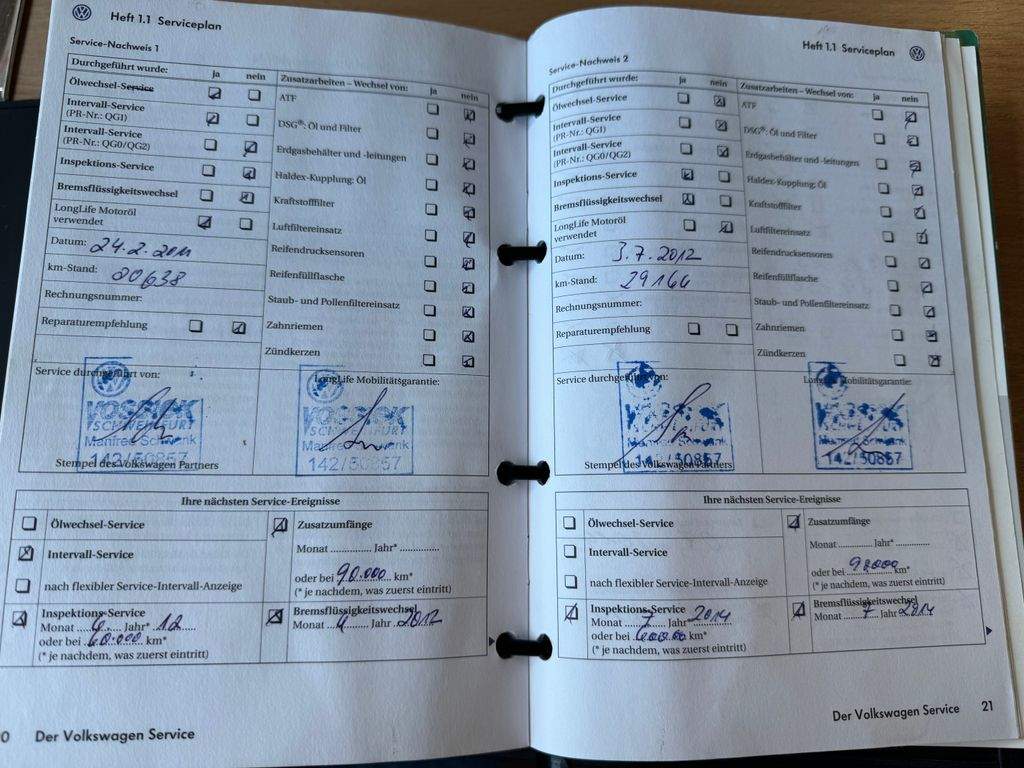 Heft 1.1 Serviceplan
Service-Nachweis 1
Durchgeführt wurde: ja nein
Ölwechsel-Service
Intervall-Service
(PR-Nr.: QG1)
Intervall-Service
(PR-Nr.: QG0/QG2)
Inspektions-Service
Bremsflüssigkeitswechsel
LongLife Motoröl
verwendet
Datum: 24.2.2011
km-Stand: 20638
Rechnungsnummer:
Reparaturempfehlung
Zusatzarbeiten – Wechsel von: ja nein
ATF
DSG®: Öl und Filter
Erdgasbehälter und -leitungen
Haldex-Kupplung: Öl
Kraftstofffilter
Luftfiltereinsatz
Reifendrucksensoren
Reifenfüllflasche
Staub- und Pollenfiltereinsatz
Zahnriemen
Zündkerzen
Service durchgeführt von:
SCHWEINFURT
Manfred Schwenk
142/50857
Stempel des Volkswagen Partners
LongLife Mobilitätsgarantie:
SCHWEINFURT
Manfred Schwenk
142/50857
Ihre nächsten Service-Ereignisse
Ölwechsel-Service
Intervall-Service
nach flexibler Service-Intervall-Anzeige
Zusatzumfänge
Monat .............. Jahr* ..............
oder bei 90.000 km*
(* je nachdem, was zuerst eintritt)
Inspektions-Service
Monat 4 Jahr* 12
oder bei 60.000 km*
(* je nachdem, was zuerst eintritt)
Bremsflüssigkeitswechsel
Monat 4 Jahr 2012
0 Der Volkswagen Service
Heft 1.1 Serviceplan
Service-Nachweis 2
Durchgeführt wurde: ja nein
Ölwechsel-Service
Intervall-Service
(PR-Nr.: QG1)
Intervall-Service
(PR-Nr.: QG0/QG2)
Inspektions-Service
Bremsflüssigkeitswechsel
LongLife Motoröl
verwendet
Datum: 3.7.2012
km-Stand: 29166
Rechnungsnummer:
Reparaturempfehlung
Zusatzarbeiten – Wechsel von: ja nein
ATF
DSG®: Öl und Filter
Erdgasbehälter und -leitungen
Haldex-Kupplung: Öl
Kraftstofffilter
Luftfiltereinsatz
Reifendrucksensoren
Reifenfüllflasche
Staub- und Pollenfiltereinsatz
Zahnriemen
Zündkerzen
Service durchgeführt von:
Stempel des Volkswagen Partners
LongLife Mobilitätsgarantie:
142/50857
Ihre nächsten Service-Ereignisse
Ölwechsel-Service
Intervall-Service
nach flexibler Service-Intervall-Anzeige
Zusatzumfänge
Monat .............. Jahr* ..............
oder bei km*
(* je nachdem, was zuerst eintritt)
Inspektions-Service
Monat 7 Jahr 2014
oder bei km*
(* je nachdem, was zuerst eintritt)
Bremsflüssigkeitswechsel
Monat 7 Jahr 2014
Der Volkswagen Service 21